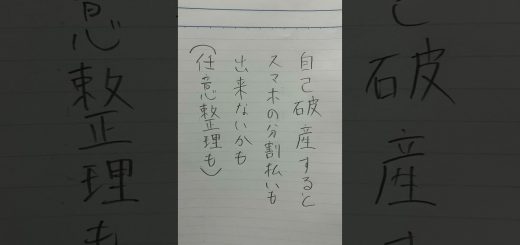 自己破産すると
スマホの分割払いも
出来ないかも
(任意整理も)